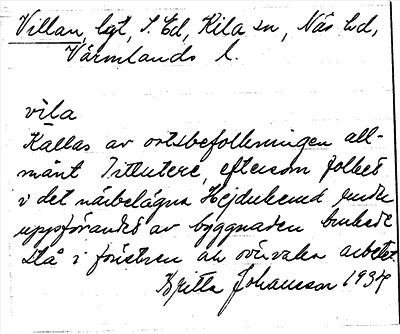 Villan, lgt, S. Ed, Kila sn, Näs hd,
Värmlands l.
vila
Kallas av ortsbefolkningen all-
mänt Tittutere, eftersom folket
i det närbelägna Hejdukerud under
uppförandet av byggnaden brukade
stå i fönstren och övervaka arbetet.
Britta Johansson 1934